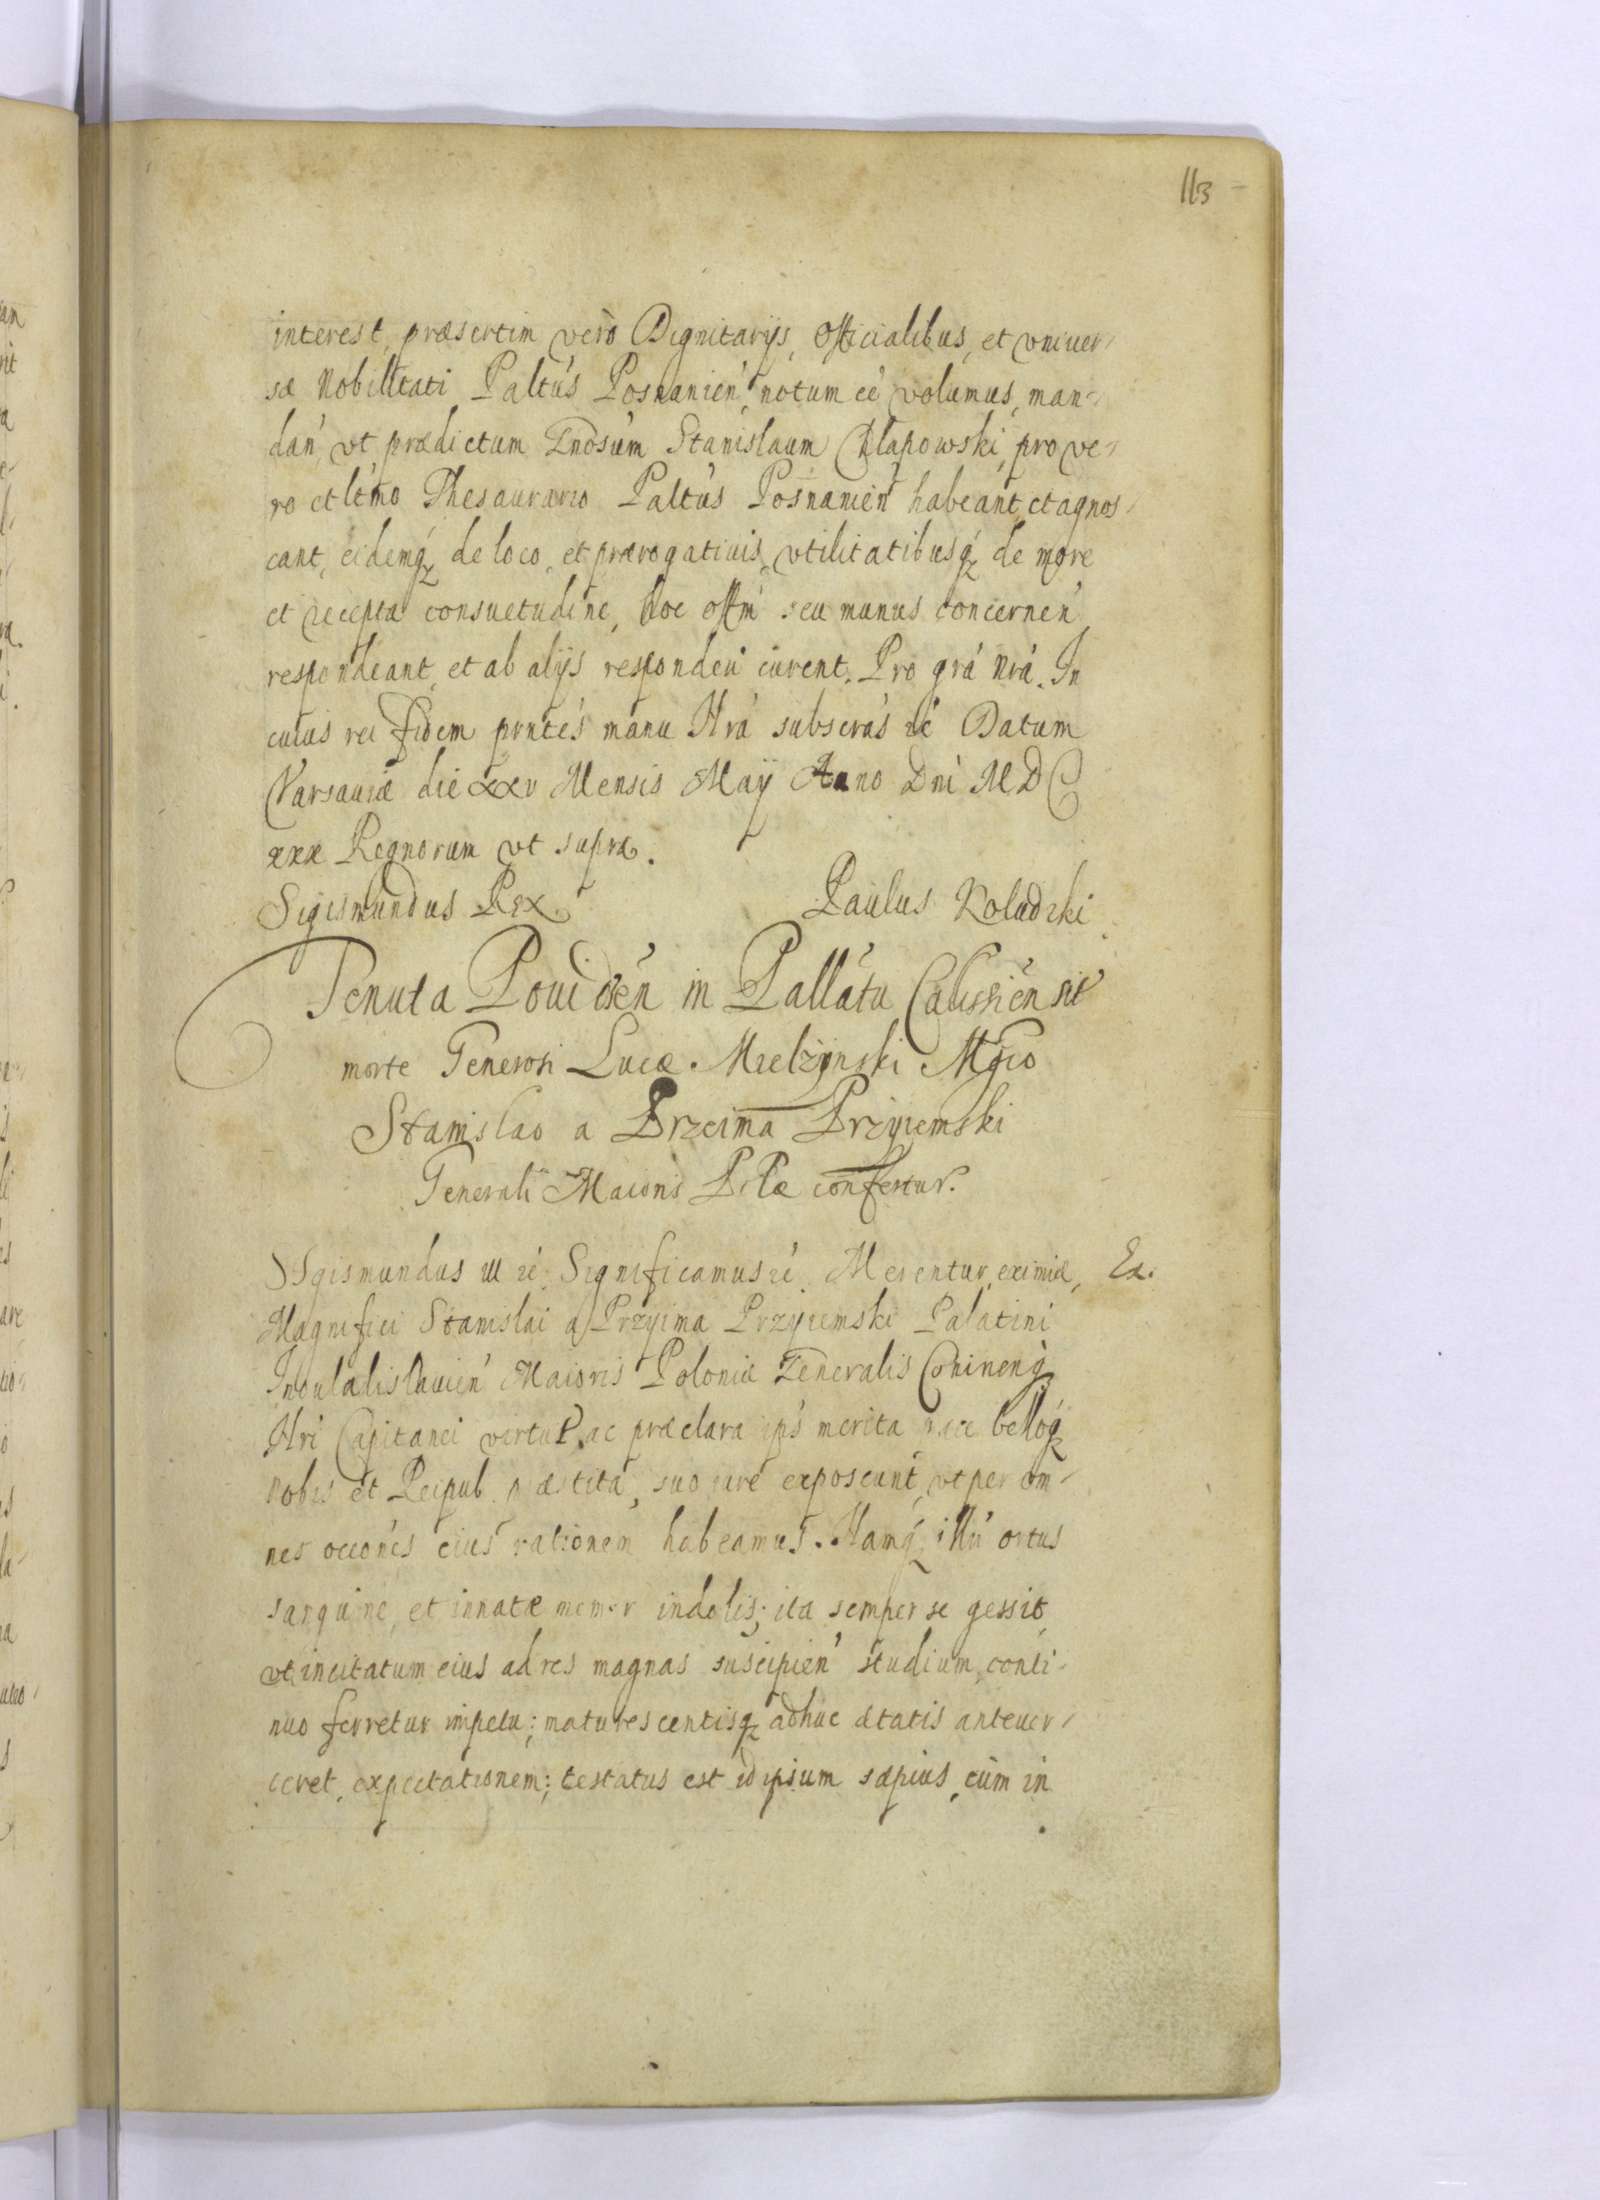 113
interest, præsertim verò Dignitarijs, Officialibus, et vniuer-
sæ Nobilitati Paltús Posnanień, notum eé volumus, man-
dań, vt prædictum Gnósum Stanislaum Chłapowski, pro ve-
ro et ltmo Thesaurario Paltús Posnanień habeant, et agnos-
cant, eidemq́ de loco, et prærogatiuis, vtilitatibusq́ de more
et recepta consuetudine, hoc offm seu munus concerneń
respondeant, et ab alijs responderi curent. Pro grá Nrá. In
cuius rei fidem prntes manu Nrá subscrás zć Datum
Varsauiæ die xxv Mensis Maij Anno Dni MDC
xxx Regnorum vt supra.
Sigismundus Rex Paulus Koludzki
Tenuta Pouidzeń in Pallátu Calissień sit
morte Generosi Lucæ Mielżynski Mgco
Stanislao a Przeima Przyiemski
Generali Maioris Plæ confertur.
Sigismundus III zć Significamus zć Merentur eximiæ, Ex.
Magnifici Stanislai a Przyima Przyiemski Palatini
Inouladislauień Maioris Poloniæ Generalis Coninenq́
Nri Capitanei virtut, ac præclara ips merita pace belloq́
Nobis et Reipub præstita, suo iure exposcunt, vt per om-
nes occońes eius rationem habeamus. Namq́ illú ortus
sanguine, et innatæ memor indolis; ita semper se gessit,
vt incitatum eius ad res magnas suscipień studium, conti-
nuo ferretur impetu; maturescentisq́ adhuc ætatis antever-
teret, expectationem; testatus est id ipsum sæpius, cùm in